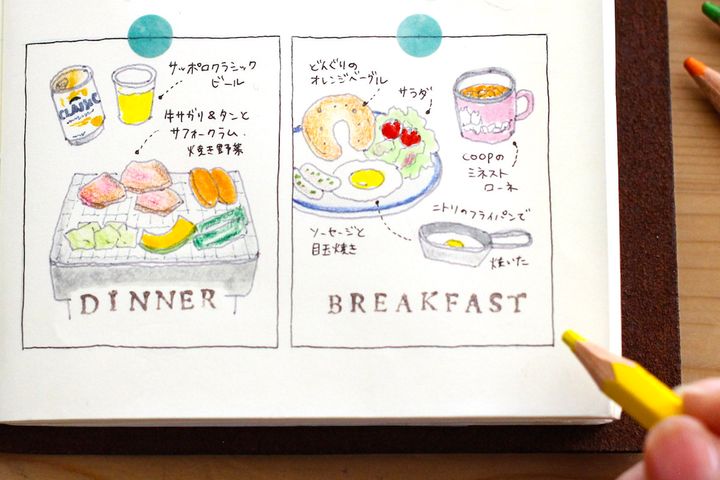 サッポロクラシック
ビール
CLASSIC
牛サガリ&タンと
サフォークラム.
焼き野菜
DINNER
どんぐりの
オレンジベーグル
サラダ
COOPの
ミネスト
ローネ
ソーセージと
目玉焼き
ニトリのフライパンで
焼いた
BREAKFAST